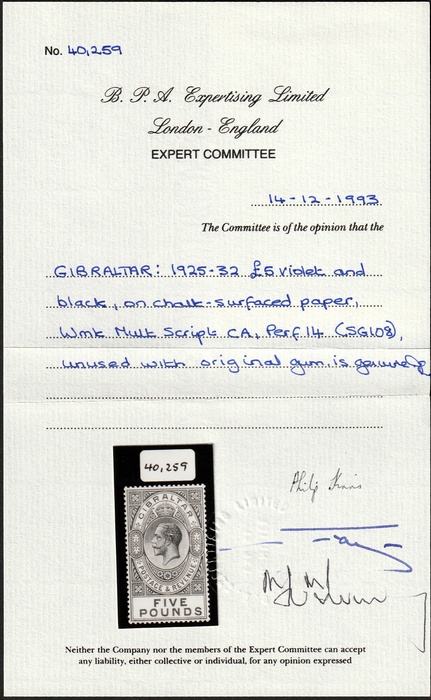 No. 40,259
B. P. A. Expertising Limited
London - England
EXPERT COMMITTEE
14-12-1993
The Committee is of the opinion that the
GIBRALTAR: 1925-32 £5 violet and
black, on chalk-surfaced paper,
Wmk Mult Script CA, Perf 14 (SG108),
unused with original gum is genuine
40,259
GIBRALTAR
POSTAGE & REVENUE
FIVE
POUNDS
Philip
LIMITED
Neither the Company nor the members of the Expert Committee can accept
any liability, either collective or individual, for any opinion expressed